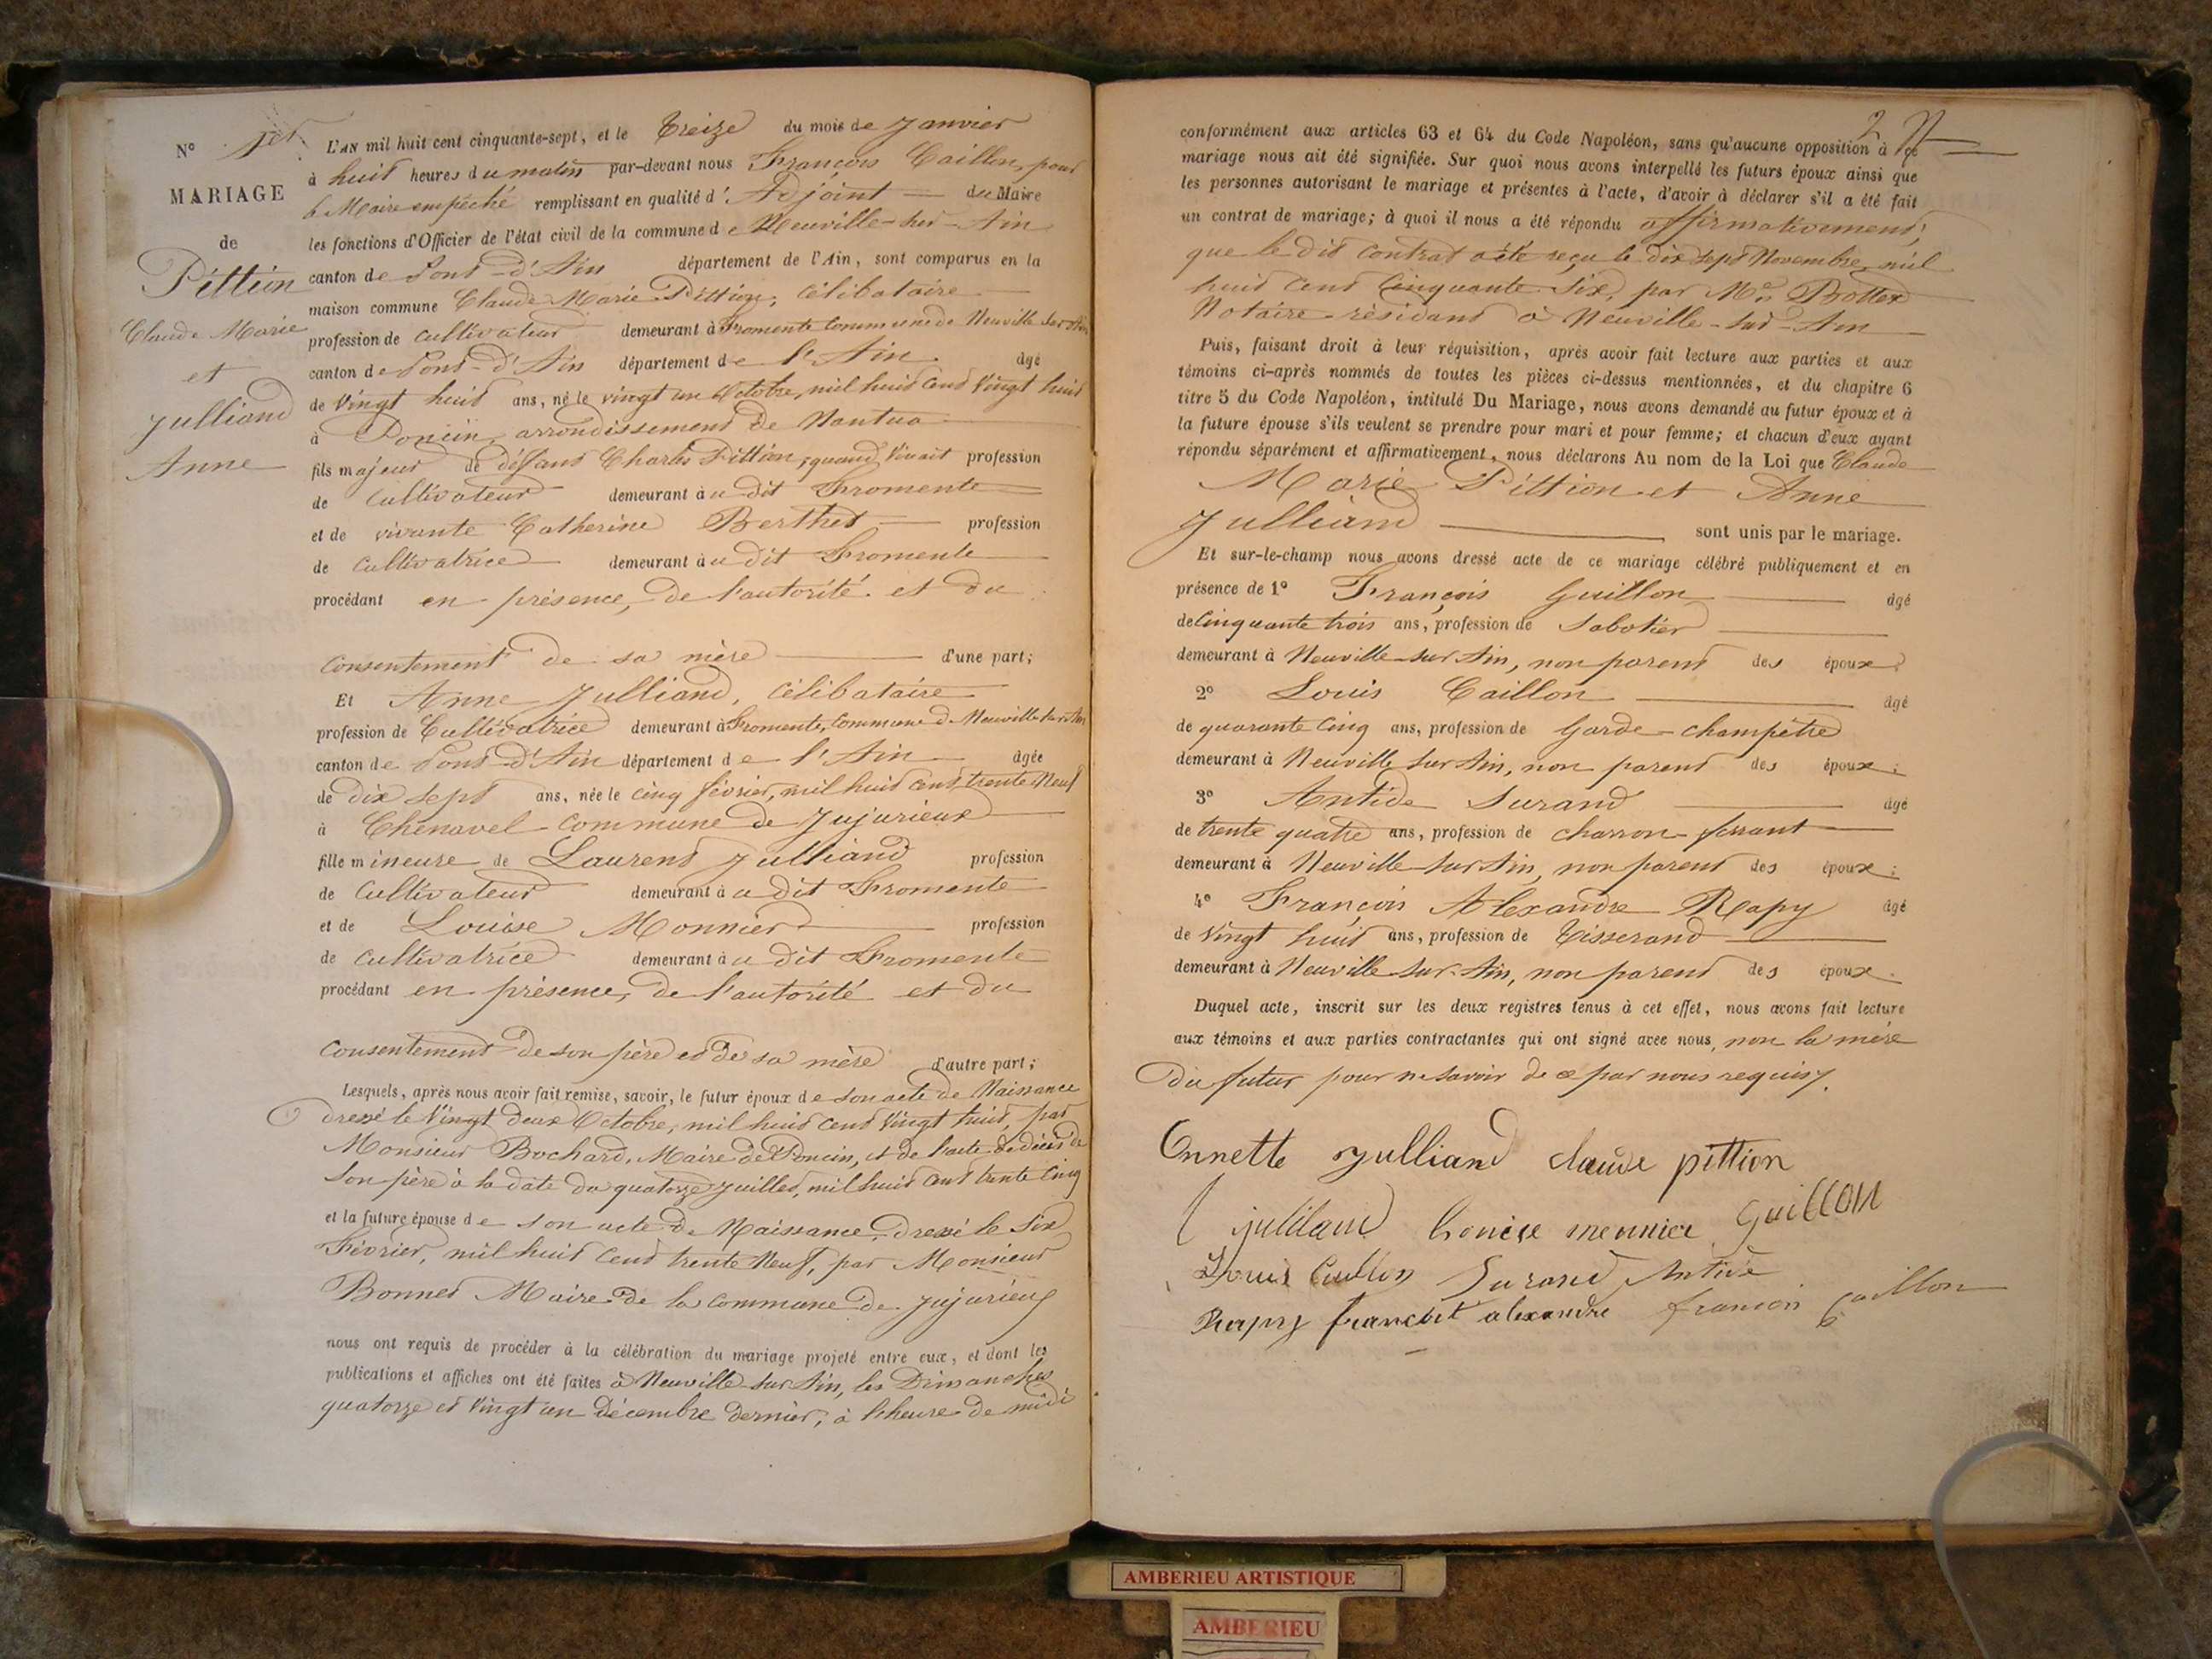 N° 1er
MARIAGE
de
Pittion
Claude Marie
et
Julliand
Anne
L'AN mil huit cent cinquante-sept, et le Treize du mois de Janvier
à huit heures du matin par-devant nous François Caillon, pour
le Maire empêché remplissant en qualité d'Adjoint du Maire
les fonctions d'Officier de l'état civil de la commune de Neuville-sur-Ain
canton de Pont-d'Ain département de l'Ain, sont comparus en la
maison commune Claude Marie Pittion, célibataire
profession de cultivateur demeurant à Fromente Commune de Neuville sur Ain
canton de Pont-d'Ain département de l'Ain âgé
de vingt huit ans, né le vingt un Octobre, mil huit cent vingt huit
à Poncin, arrondissement de Nantua
fils majeur de déffunt Charles Pittion, quand vivait profession
de cultivateur demeurant au dit Fromente
et de vivante Catherine Berthet profession
de cultivatrice demeurant au dit Fromente
procédant en présence, de l'autorité et du
consentement de sa mère d'une part;
Et Anne Julliand, célibataire
profession de Cultivatrice demeurant à Fromente, Commune de Neuville sur Ain
canton de Pont-d'Ain département de l'Ain âgée
de dix sept ans, née le cinq février, mil huit cent trente neuf
à Chenavel commune de Jujurieux
fille mineure de Laurent Julliand profession
de cultivateur demeurant au dit Fromente
et de Louise Monnier profession
de cultivatrice demeurant au dit Fromente
procédant en présence, de l'autorité et du
consentement de son père et de sa mère d'autre part;
Lesquels, après nous avoir fait remise, savoir, le futur époux de son acte de Naissance
dressé le vingt deux Octobre, mil huit cent vingt huit, par
Monsieur Bochard, Maire de Poncin, et de l'acte de décès de
son père à la date du quatorze juillet, mil huit cent trente cinq
et la future épouse de son acte de Naissance, dressé le six
Février, mil huit cent trente neuf, par Monsieur
Bonnet Maire de la commune de Jujurieux
nous ont requis de procéder à la célébration du mariage projeté entre eux, et dont les
publications et affiches ont été faites à Neuville-sur-Ain, les Dimanches
quatorze et vingt un Décembre dernier, à l'heure de midi
2
conformément aux articles 63 et 64 du Code Napoléon, sans qu'aucune opposition à ce
mariage nous ait été signifiée. Sur quoi nous avons interpellé les futurs époux ainsi que
les personnes autorisant le mariage et présentes à l'acte, d'avoir à déclarer s'il a été fait
un contrat de mariage; à quoi il nous a été répondu affirmativement,
que le dit contrat a été reçu le dix sept Novembre, mil
huit cent cinquante six, par Me Bottex
Notaire résidant à Neuville-sur-Ain
Puis, faisant droit à leur réquisition, après avoir fait lecture aux parties et aux
témoins ci-après nommés de toutes les pièces ci-dessus mentionnées, et du chapitre 6
titre 5 du Code Napoléon, intitulé Du Mariage, nous avons demandé au futur époux et à
la future épouse s'ils veulent se prendre pour mari et pour femme; et chacun d'eux ayant
répondu séparément et affirmativement, nous déclarons Au nom de la Loi que Claude
Marie Pittion et Anne
Julliand sont unis par le mariage.
Et sur-le-champ nous avons dressé acte de ce mariage célébré publiquement et en
présence de 1° François Guillon âgé
de cinquante trois ans, profession de Sabotier
demeurant à Neuville-sur-Ain, non parent des époux;
2° Louis Caillon âgé
de quarante cinq ans, profession de Garde-champêtre
demeurant à Neuville sur Ain, non parent des époux;
3° Antide Durand âgé
de trente quatre ans, profession de charron-ferrant
demeurant à Neuville-sur-Ain, non parent des époux;
4° François Alexandre Rapy âgé
de vingt huit ans, profession de Tisserand
demeurant à Neuville-sur-Ain, non parent des époux.
Duquel acte, inscrit sur les deux registres tenus à cet effet, nous avons fait lecture
aux témoins et aux parties contractantes qui ont signé avec nous, non la mère
du futur pour ne savoir de ce par nous requis.
Annette Julliand claude pittion
julliand Louise monnier Guillon
Louis Caillon Durand Antide
Rapy francoit alexandre francoi Caillon
AMBERIEU ARTISTIQUE
AMBERIEU